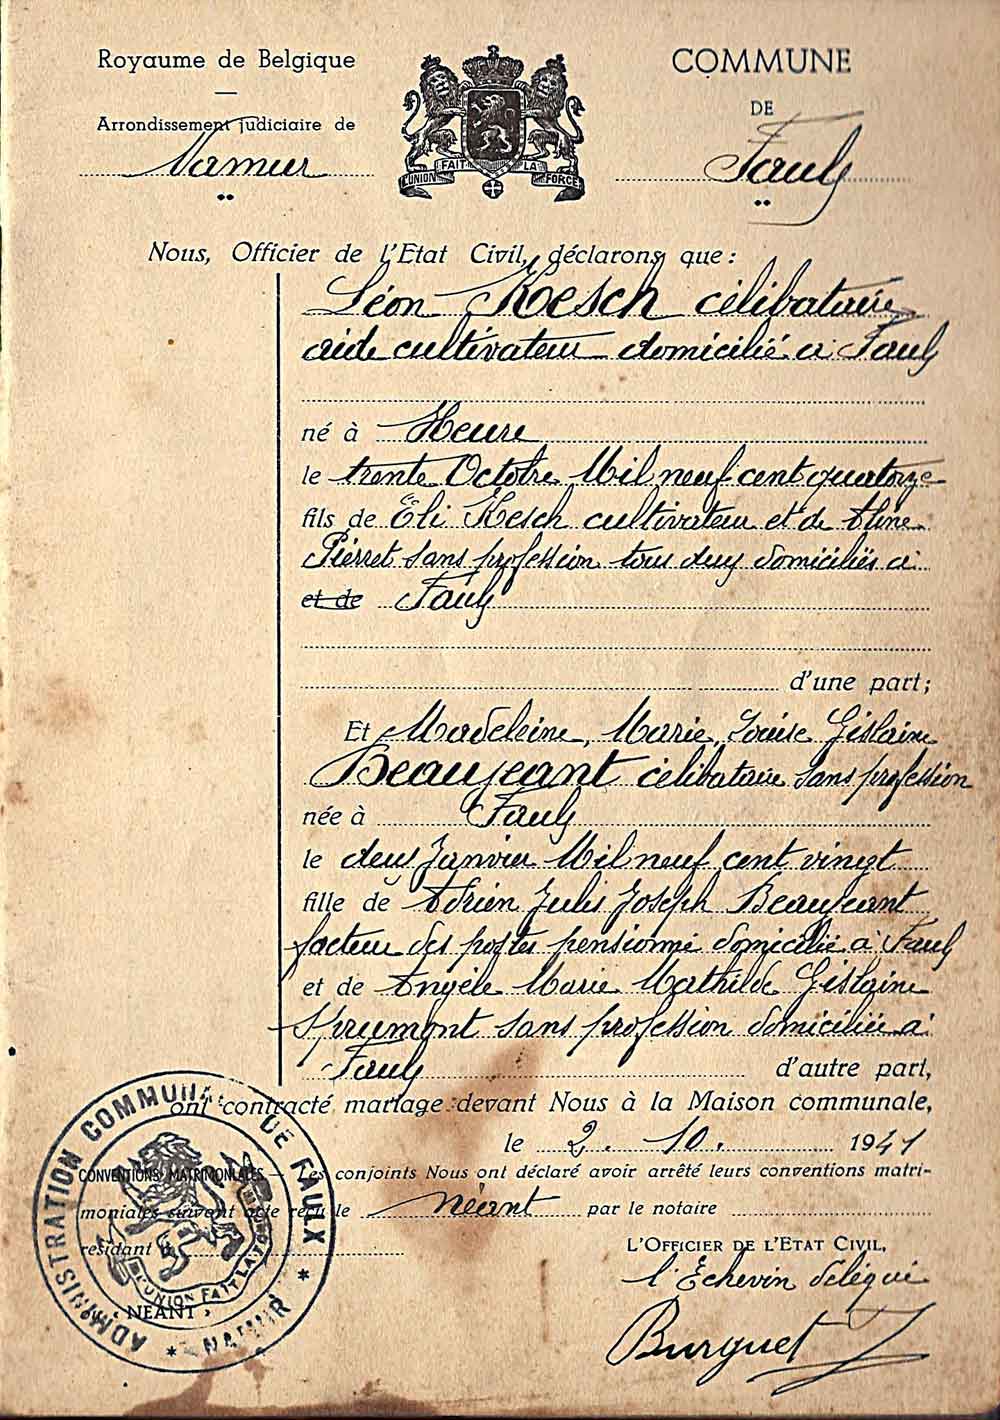 Royaume de Belgique
—
Arrondissement judiciaire de
Namur
L'UNION FAIT LA FORCE
COMMUNE
DE
Faulx
Nous, Officier de l'Etat Civil, déclarons que :
Léon Kesch célibataire
aide cultivateur domicilié à Faulx
né à Heure
le trente Octobre Mil neuf cent quatorze
fils de Eli Kesch cultivateur et de Aline
Pierret sans profession tous deux domiciliés à
et de Faulx
d'une part;
Et Madeleine, Marie, Louise Gislaine
Beaujeant célibataire sans profession
née à Faulx
le deux Janvier Mil neuf cent vingt
fille de Adrien Jules Joseph Beaujeant
facteur des postes pensionné domicilié à Faulx
et de Angèle Marie Mathilde Gislaine
Sprumont sans profession domiciliée à
Faulx d'autre part,
ont contracté mariage devant Nous à la Maison communale,
le 2. 10. 1941
CONVENTIONS MATRIMONIALES — Les conjoints Nous ont déclaré avoir arrêté leurs conventions matri-
moniales suivant acte reçu le néant par le notaire
résidant à
ou « NEANT »
L'OFFICIER DE L'ETAT CIVIL,
l'Echevin délégué
Burguet
ADMINISTRATION COMMUNALE DE FAULX * NAMUR *
L'UNION FAIT LA FORCE